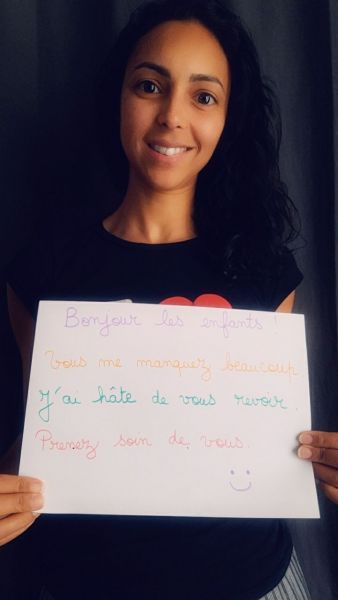 Bonjour les enfants !
Vous me manquez beaucoup
J'ai hâte de vous revoir.
Prenez soin de vous.